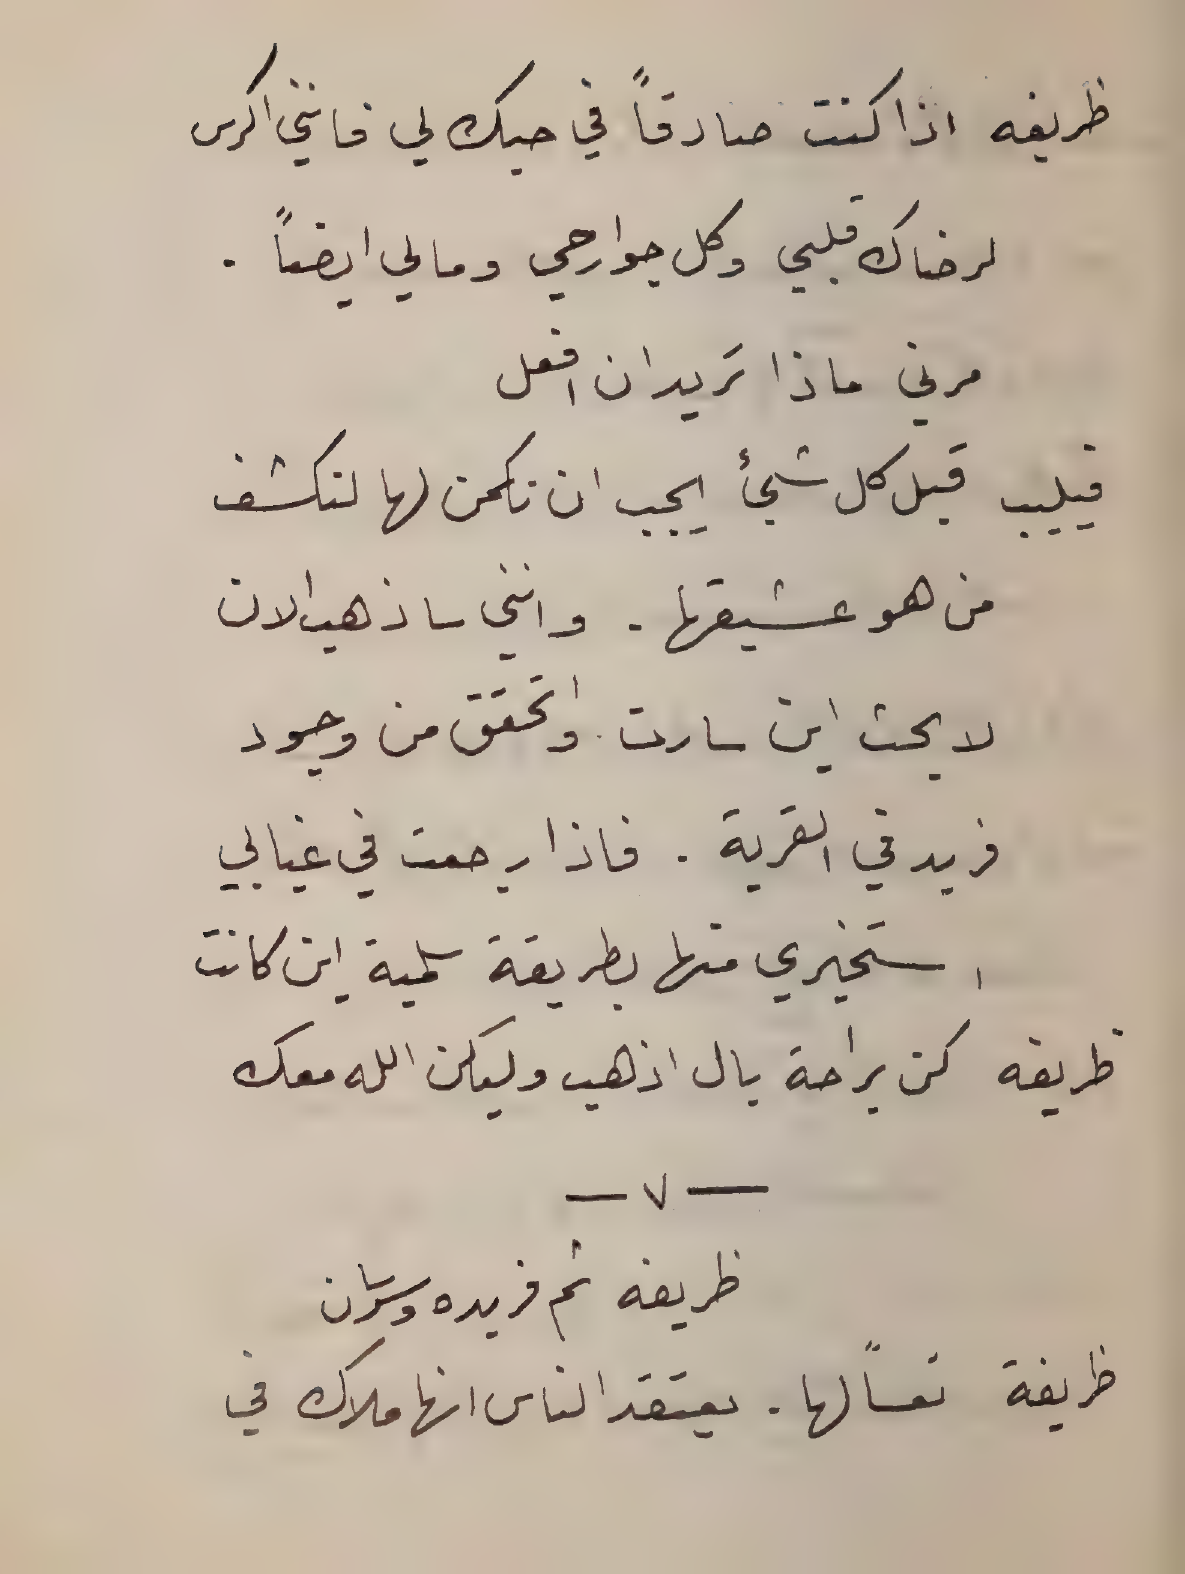 ظريفه اذا كنت صادقاً في حبك لي فانني اكرس
لرضاك قلبي وكل جوارحي ومالي ايضاً .
مرني ماذا تريد ان افعل
فيليب قبل كل شيئ يجب ان نكمن لها لنكشف
من هو عشيقها . وانني ساذهب الان
لابحث اين سارت واتحقق من وجود
فريد في القرية . فاذا رجعت في غيابي
استخبري منها بطريقة سلمية اين كانت
ظريفه كن براحة بال اذهب وليكن الله معك
— ٧ —
ظريفه ثم فريده وسوسان
ظريفة تعساً لها . يعتقد الناس انها ملاك في